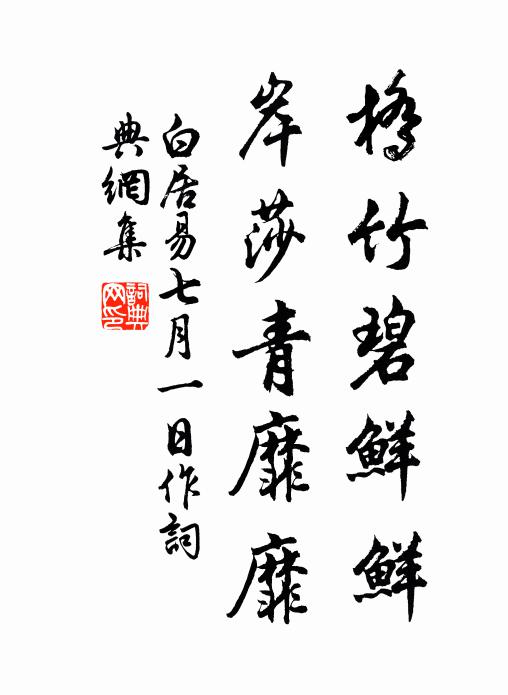 橋竹碧鮮鮮
岸莎青靡靡
白居易七月一日作詞
典網集
詞典網印